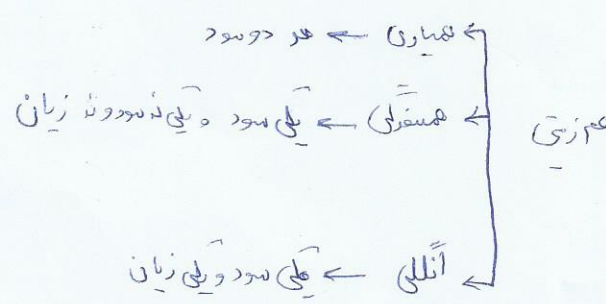 همیاری ← هر دو سود
هم زیتی
همسفرگی ← یکی سود و یکی نه سود و نه زیان
انگلی ← یکی سود و یکی زیان